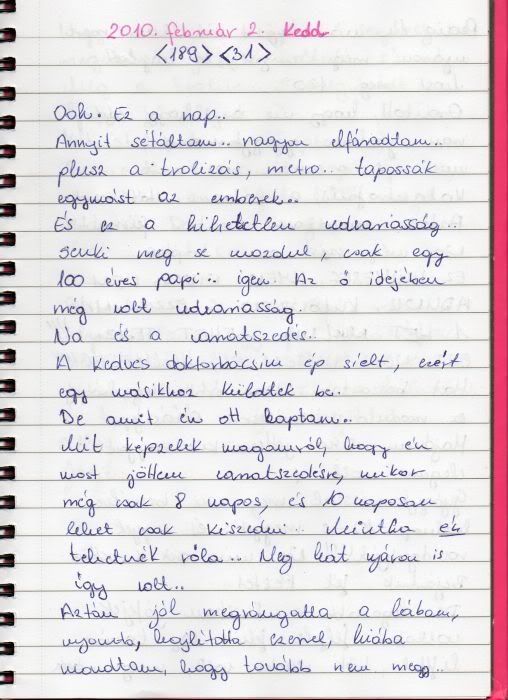 2010. február 2. Kedd
<189> <31>
Ooh. Ez a nap..
Annyit sétáltam.. nagyon elfáradtam..
plusz a trolizás, metro.. tapossák
egymást az emberek..
És ez a hihetetlen udvariasság..
senki meg se mozdul, csak egy
100 éves papi.. igen. Az ő idejében
még volt udvariasság.
Na és a varratszedés..
A kedves doktorbácsim ép síelt, ezért
egy másikhoz küldtek be.
De amit én ott kaptam..
Mit képzelek magamról, hogy én
most jöttem varratszedésre, mikor
még csak 8 napos, és 10 naposan
lehet csak kiszedni.. Mintha én
tehetnék róla.. Meg hát nyáron is
így volt..
Aztán jól megrángatta a lábam,
nyomta, hajlította ezerrel, hiába
mondtam, hogy tovább nem megy..